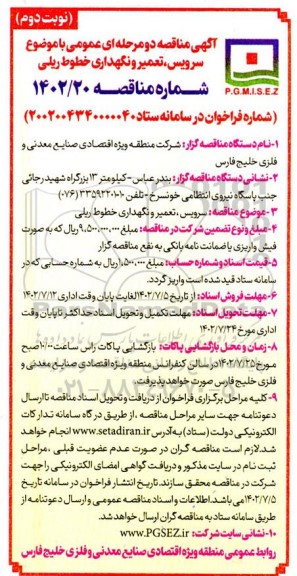 (نوبت دوم)
آگهی مناقصه دو مرحله ای عمومی با موضوع
سرویس، تعمیر و نگهداری خطوط ریلی
شماره مناقصه ۱۴۰۲/۲۰
P.G.M.I.S.E.Z
(شماره فراخوان در سامانه ستاد ۲۰۰۲۰۰۴۳۴۰۰۰۰۰۴۰)
۱-نام دستگاه مناقصه گزار: شرکت منطقه ویژه اقتصادی صنایع معدنی و
فلزی خلیج فارس
۲-نشانی دستگاه مناقصه گزار: بندرعباس-کیلومتر ۱۳ بزرگراه شهید رجائی
جنب پاسگاه نیروی انتظامی خونسرخ-تلفن ۳۳۵۹۲۲۰۱۰ (۰۷۶)
۳-موضوع مناقصه: سرویس، تعمیر و نگهداری خطوط ریلی
۴-مبلغ و نوع تضمین شرکت در مناقصه: مبلغ ۹،۵۰۰،۰۰۰،۰۰۰ ریال که به صورت
فیش واریزی یا ضمانت نامه بانکی به نفع مناقصه گزار
۵-قیمت اسناد و شماره حساب: مبلغ ۱،۰۰۰،۰۰۰ ریال به شماره حسابی که در
سامانه ستاد قید شده است واریز گردد.
۶-مهلت فروش اسناد: از تاریخ ۱۴۰۲/۷/۵ لغایت پایان وقت اداری ۱۴۰۲/۷/۱۲
۷-مهلت تحویل اسناد: مهلت تکمیل و تحویل اسناد حداکثر تا پایان وقت
اداری مورخ ۱۴۰۲/۷/۲۴
۸-زمان و محل بازگشایی پاکات: بازگشایی پاکات راس ساعت ۱۰:۰۰ صبح
مورخ ۱۴۰۲/۷/۲۵ در سالن کنفرانس منطقه ویژه اقتصادی صنایع معدنی و
فلزی خلیج فارس صورت خواهد پذیرفت.
۹-کلیه مراحل برگزاری فراخوان از دریافت و تحویل اسناد مناقصه تا ارسال
دعوتنامه جهت سایر مراحل مناقصه، از طریق درگاه سامانه تدارکات
الکترونیکی دولت (ستاد) به آدرس www.setadiran.ir انجام خواهد
شد. لازم است مناقصه گران در صورت عدم عضویت قبلی، مراحل
ثبت نام در سایت مذکور و دریافت گواهی امضای الکترونیکی را جهت
شرکت در مناقصه محقق سازند. تاریخ انتشار فراخوان در سامانه تاریخ
۱۴۰۲/۷/۵ می باشد. اطلاعات و اسناد مناقصه عمومی و ارسال دعوتنامه از
طریق سامانه ستاد به مناقصه گران ارسال خواهد شد.
۱۰-نشانی سایت شرکت: www.PGSEZ.ir
روابط عمومی منطقه ویژه اقتصادی صنایع معدنی و فلزی خلیج فارس